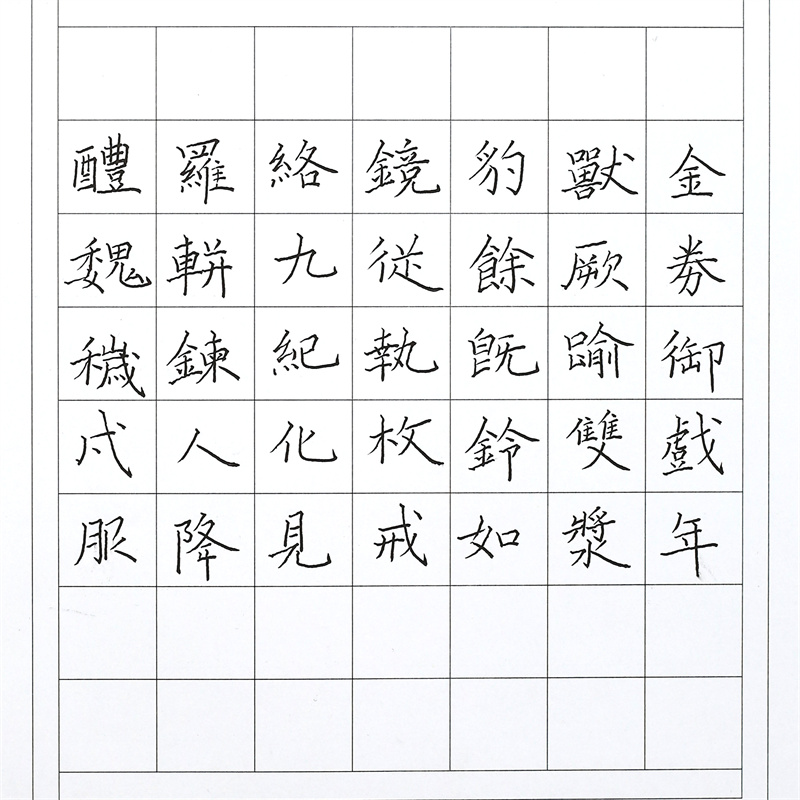 金券御戲年
獸厥踰雙漿
豹餘既鈴如
鏡從執枚戒
絡九紀化見
羅輧鍊人降
醴魏穢戍服